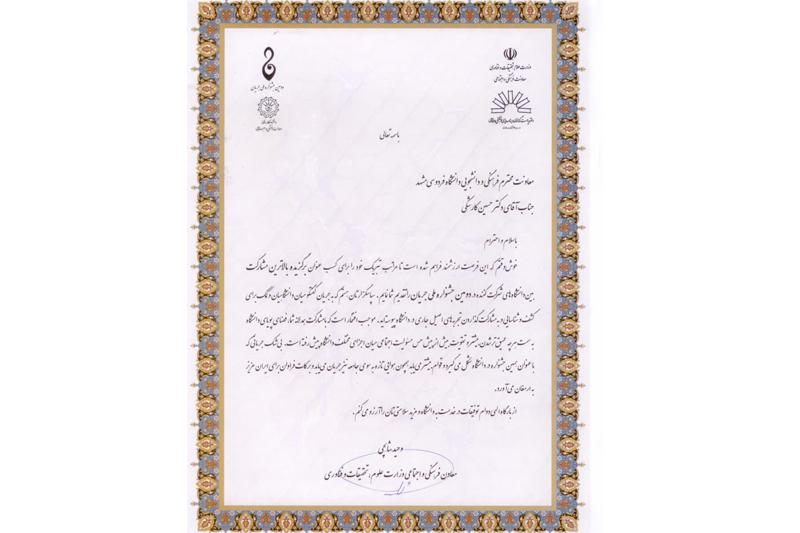 وزارت علوم، تحقیقات و فناوری
معاونت فرهنگی و اجتماعی
دومین جشنواره ملی جریان
باسمه تعالی
معاونت محترم فرهنگی و دانشجویی دانشگاه فردوسی مشهد
جناب آقای دکتر حسین کارشکی
با سلام و احترام
خوش وقتم که این فرصت ارزشمند فراهم شده است تا مراتب تبریک خود را برای کسب عنوان برگزیده بالاترین مشارکت
بین دانشگاه‌های شرکت کننده در دومین جشنواره ملی جریان را تقدیم نمایم. سپاسگزارتان هستم که به جریان گفتگو میان دانشگاهیان و کمک برای
کشف و شناسایی و به مشارکت گذاردن تجربه‌های اصیل جاری در دانشگاه پیوسته‌اید. موجب افتخار است که با مشارکت فضای پویای دانشگاه
به سمت هرچه عمیق تر شدن و تقویت بیش از پیش حس مسئولیت اجتماعی میان اجزای مختلف دانشگاه پیش رفته است. بی شک جریانی که
با عنوان همین جشنواره در دانشگاه شکل می گیرد و قوام بیشتری یابد همچون هوایی تازه به سوی جامعه نیز جریان می یابد و برکات فراوان برای ایران عزیز
به ارمغان می آورد.
از بارگاه الهی دوام توفیقات در خدمت به دانشگاه و مزید سلامتی تان را آرزو می کنم.
وحید شالچی
معاون فرهنگی و اجتماعی وزارت علوم، تحقیقات و فناوری